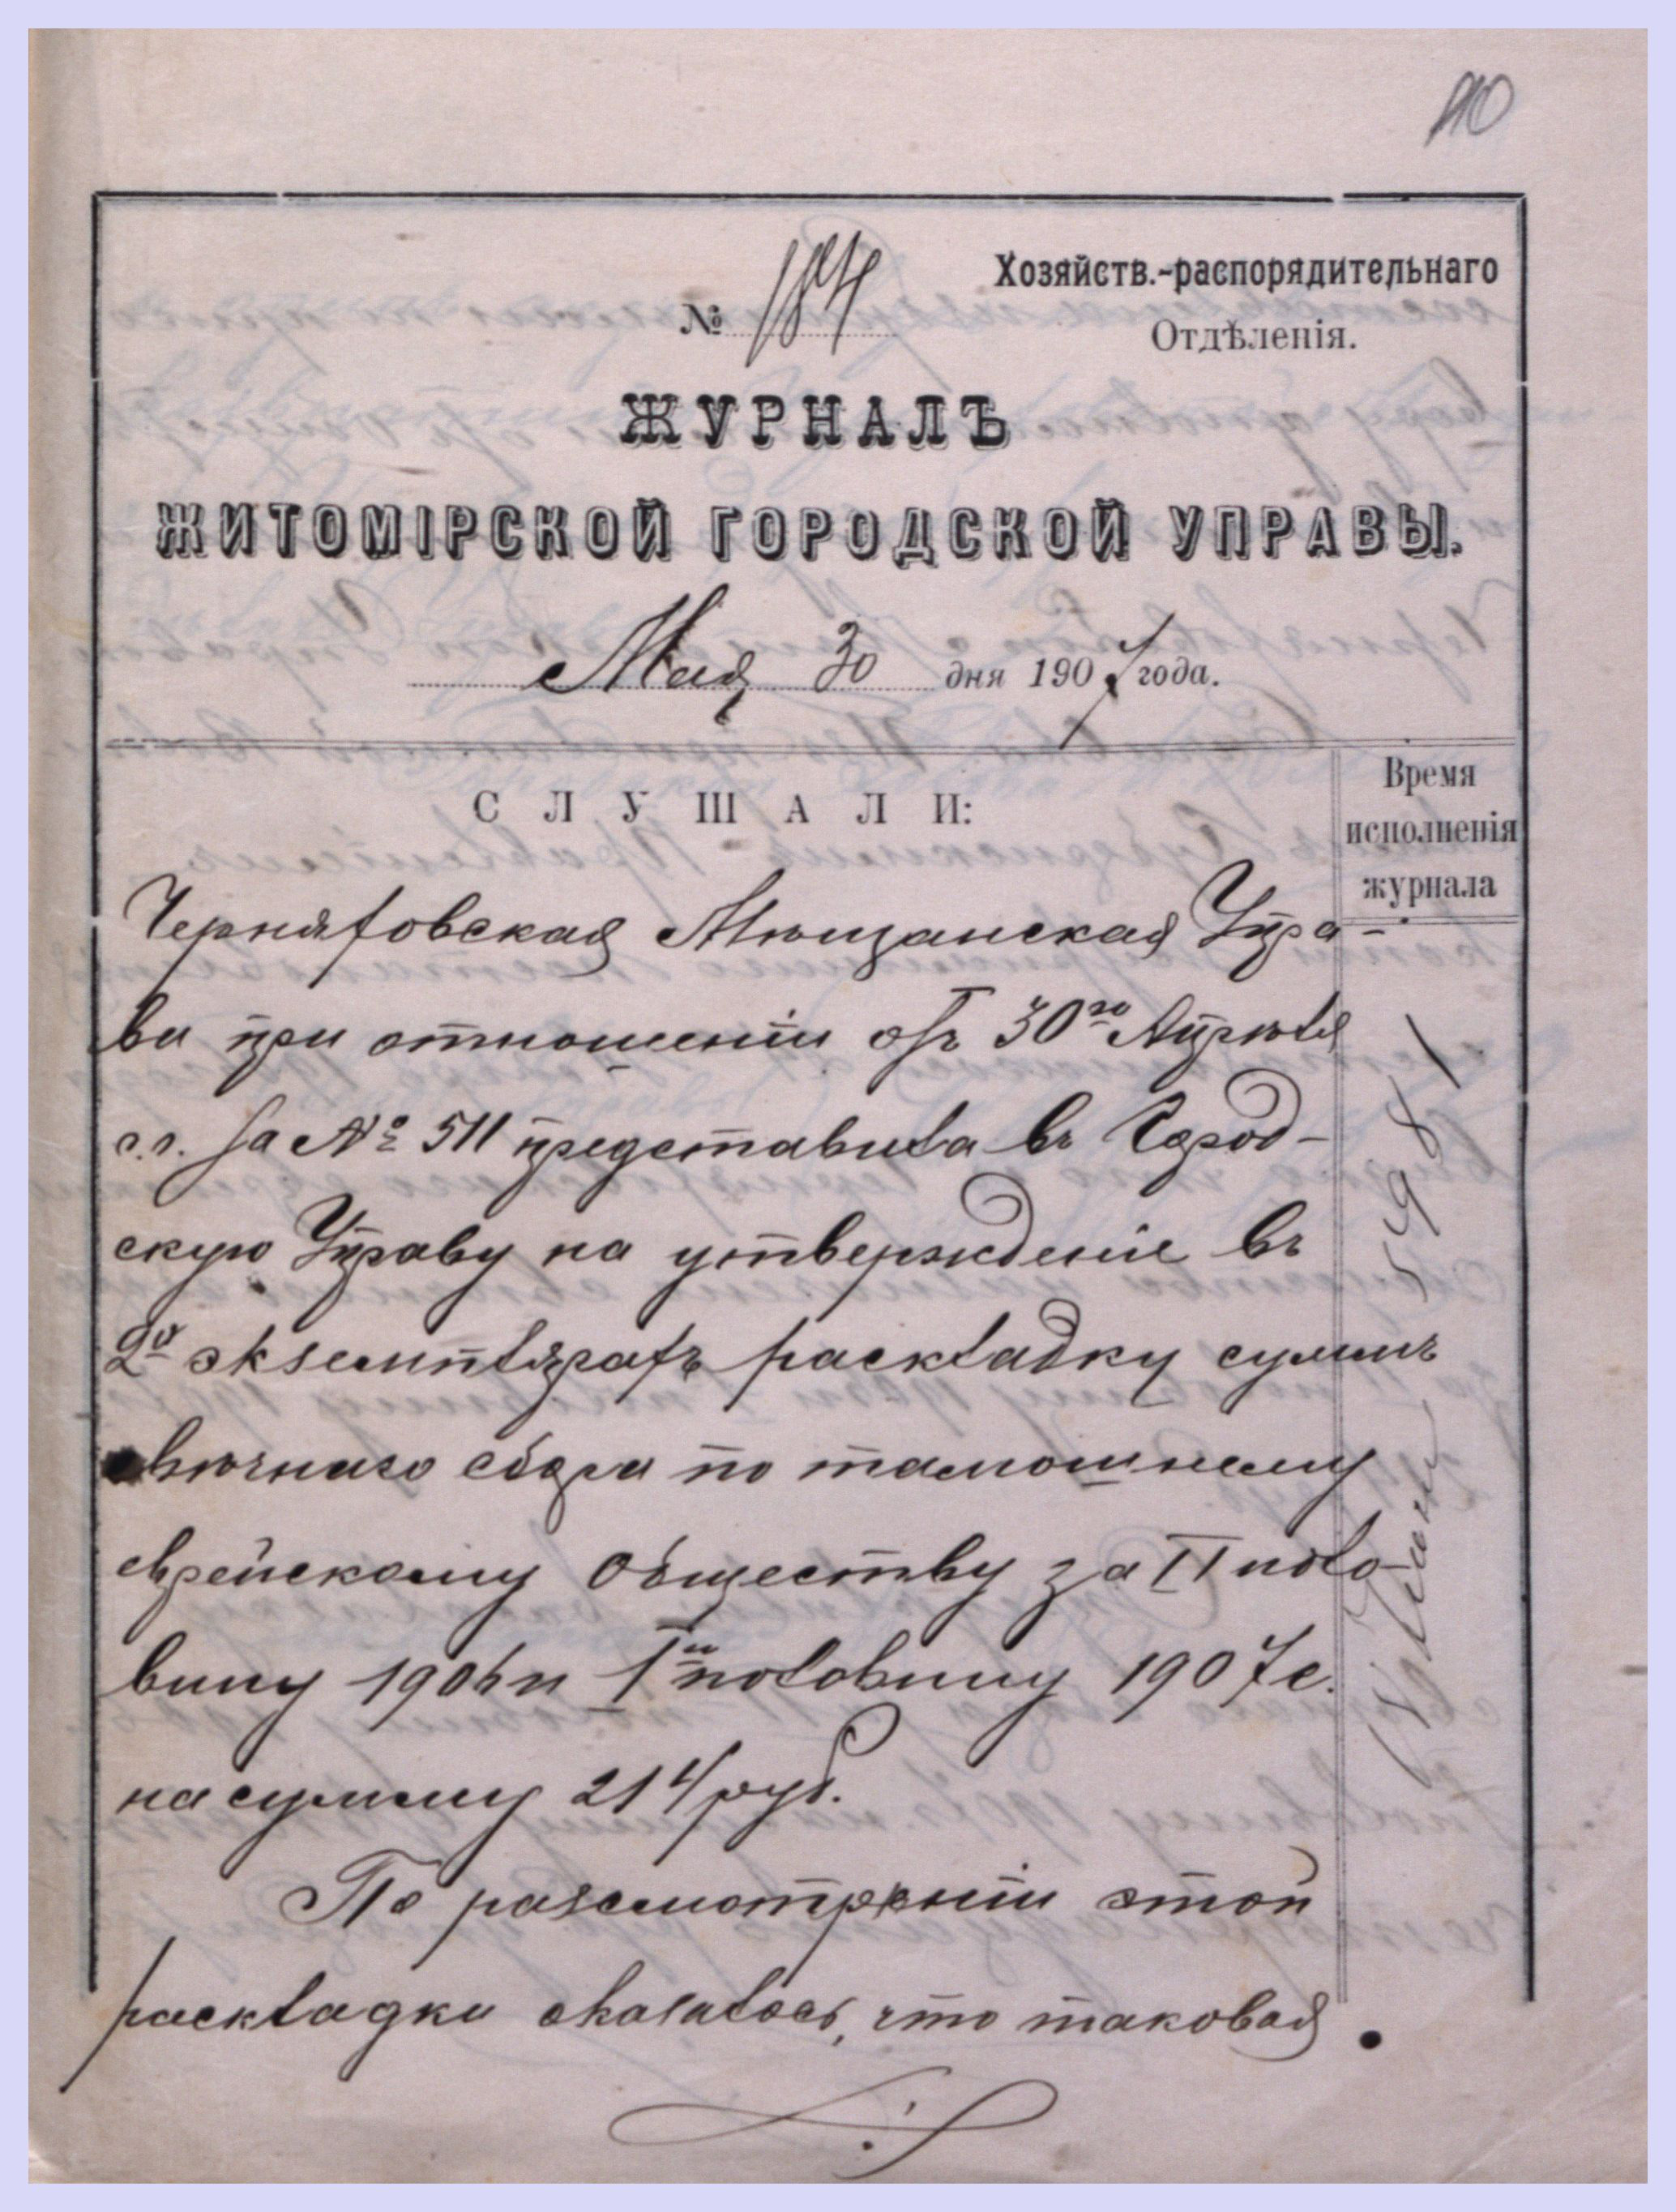 № 184
Хозяйств.-распорядительнаго
Отдѣленія.
ЖУРНАЛЪ
ЖИТОМІРСКОЙ ГОРОДСКОЙ УПРАВЫ.
Мая 30 дня 1907 года.
СЛУШАЛИ:
Время
исполненія
журнала
Черняховская Мѣщанская Упра-
ва при отношеніи отъ 30го Апрѣля
с.г. за № 511 представила въ Город-
скую Управу на утвержденіе въ
2х экземплярахъ раскладку суммъ
свѣчнаго сбора по тамошнему
еврейскому обществу за II поло-
вину 1906 и Iю половину 1907 г.
на сумму 214 руб.
По разсмотрѣніи этой
раскладки оказалось, что таковая
5981